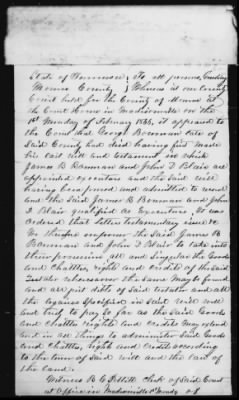 State of Tennessee } To all persons, Greeting
Monroe County } Whereas at our County
Court held for the County of Monroe at
the Court House in Madisonville on the
1st Monday of February 1866, it appeared to
the Court that George Bowman late of
Said County had died having first made
his last will and testament, in which
James B Bowman and John D Blair are
appointed executors and the said will
having been proved and admitted to record
and the said James B Bowman and John
D Blair qualified as Executors, it was
ordered that letters testamentary issue to
We therefore empower the said James B
Bowman and John D Blair to take into
their possession all and Singular the Goods
and Chattles, rights and Credits of the said
Testator wheresoever the same may be found
and all just debts of said testator and all
the legacies specified in said will well
and truly to pay so far as the said Goods
and Chattles rights and Credits may extend
and in all things to administer said Goods
and Chattles, rights and Credits according
to the tenor of said will and the law of
the land.
Witness B C Pettitt Clerk of Said Court
at office in Madisonville 1st Monday of